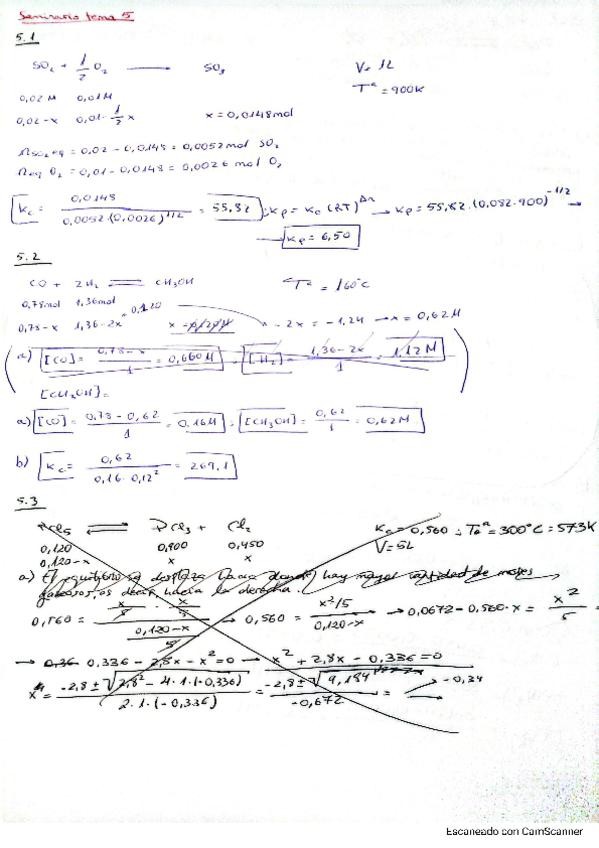 Seminario tema 5
5.1
SO₂ + 1/2 O₂ ⟶ SO₃ V= 1L
0,02M 0,01M Tª = 900K
0,02-x 0,01-1/2 x x = 0,0148mol
nSO₂eq = 0,02 - 0,0148 = 0,0052mol SO₂
neq O₂ = 0,01 - 0,0148 = 0,0026 mol O₂
Kc = 0,0148 / 0,0052·(0,0026)^1/2 = 55,82 ; Kp = Kc (RT)^Δn → Kp = 55,82·(0,082·900)^-1/2 →
→ Kp = 6,50
5.2
CO + 2H₂ ⇌ CH₃OH Tª = 160°C
0,78mol 1,36mol
0,78-x 1,36-2x = 0,120 x -2x = -1,24 → x = 0,62M
a) [CO] = 0,78-x / 1 = 0,660M ; [H₂] = 1,36-2x / 1 = 1,12M
[CH₃OH] =
a) [CO] = 0,78 - 0,62 / 1 = 0,16M ; [CH₃OH] = 0,62 / 1 = 0,62M
b) Kc = 0,62 / 0,16·0,12² = 269,1
5.3
PCl₅ ⇌ PCl₃ + Cl₂ Kc = 0,560 ; Tª = 300°C = 573K
0,120 0,900 0,450 V = 5L
0,120-x x x
a) El equilibrio se desplaza hacia donde hay mayor cantidad de moles
gaseosos, es decir, hacia la derecha.
0,560 = x/5 · x/5 / 0,120-x/5 → 0,560 = x²/5 / 0,120-x → 0,0672 - 0,560·x = x²/5 =
→ 0,336 - 2,8x - x² = 0 → x² + 2,8x - 0,336 = 0
x = -2,8 ± √2,8² - 4·1·(-0,336) / 2·1·(-0,336) = -2,8 ± √9,184 / -0,672 = -0,34
Escaneado con CamScanner